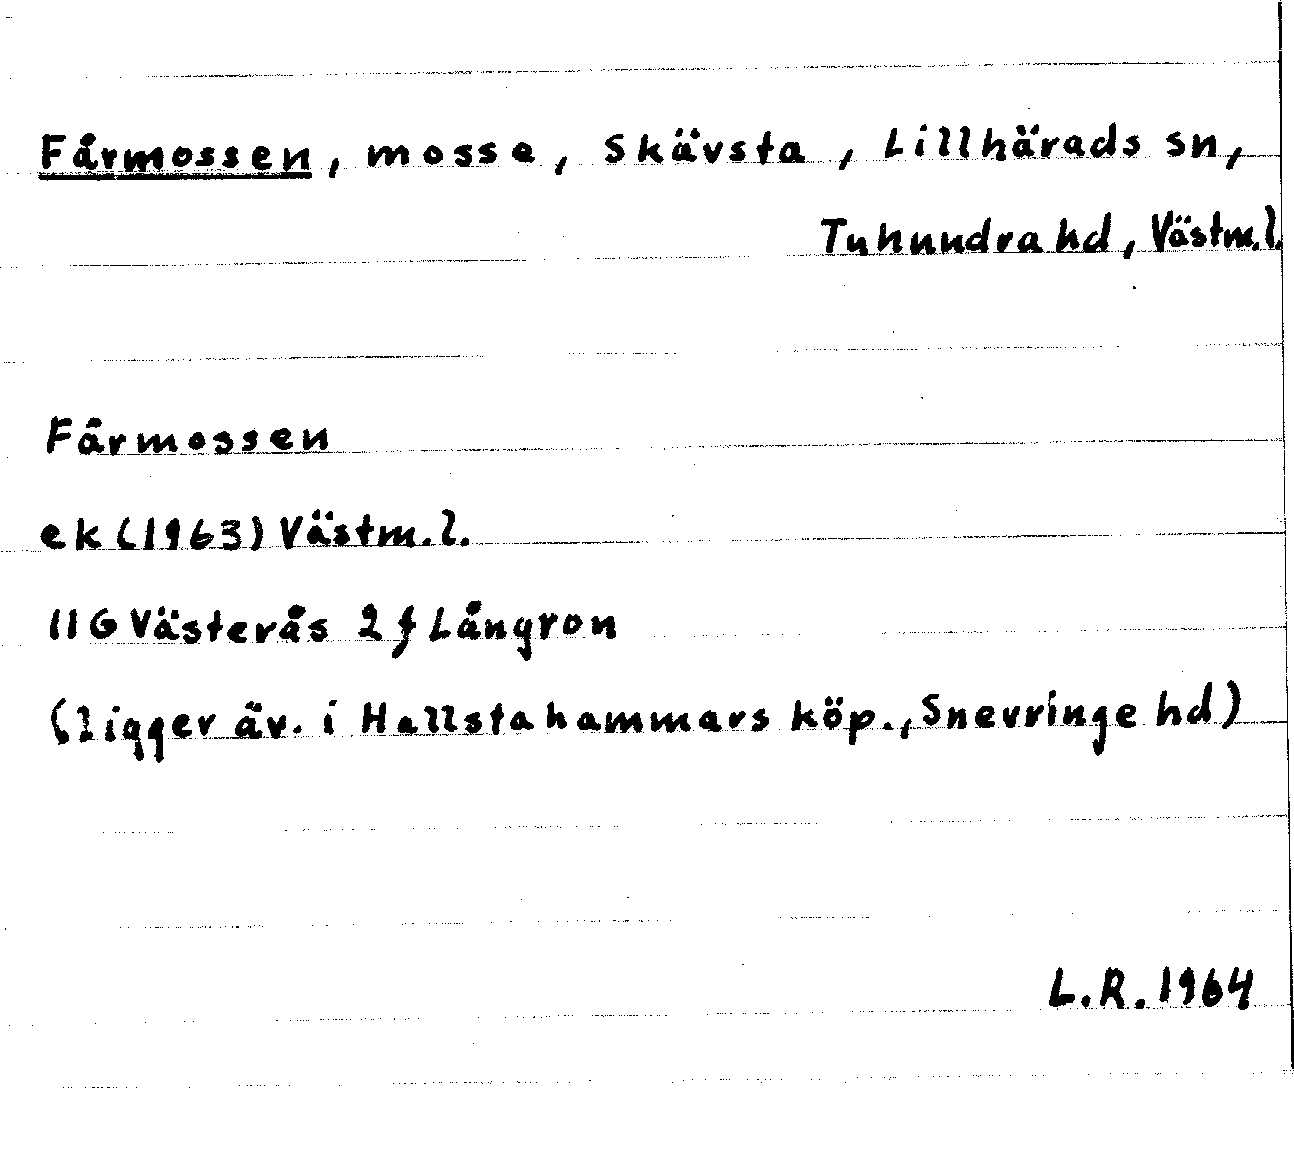 Fårmossen, mosse, Skävsta, Lillhärads sn,
Tuhundra hd, Västm.l.
Fårmossen
ek (1963) Västm.l.
11G Västerås 2f Långron
(ligger äv. i Hallstahammars köp., Snevringe hd)
L.R. 1964